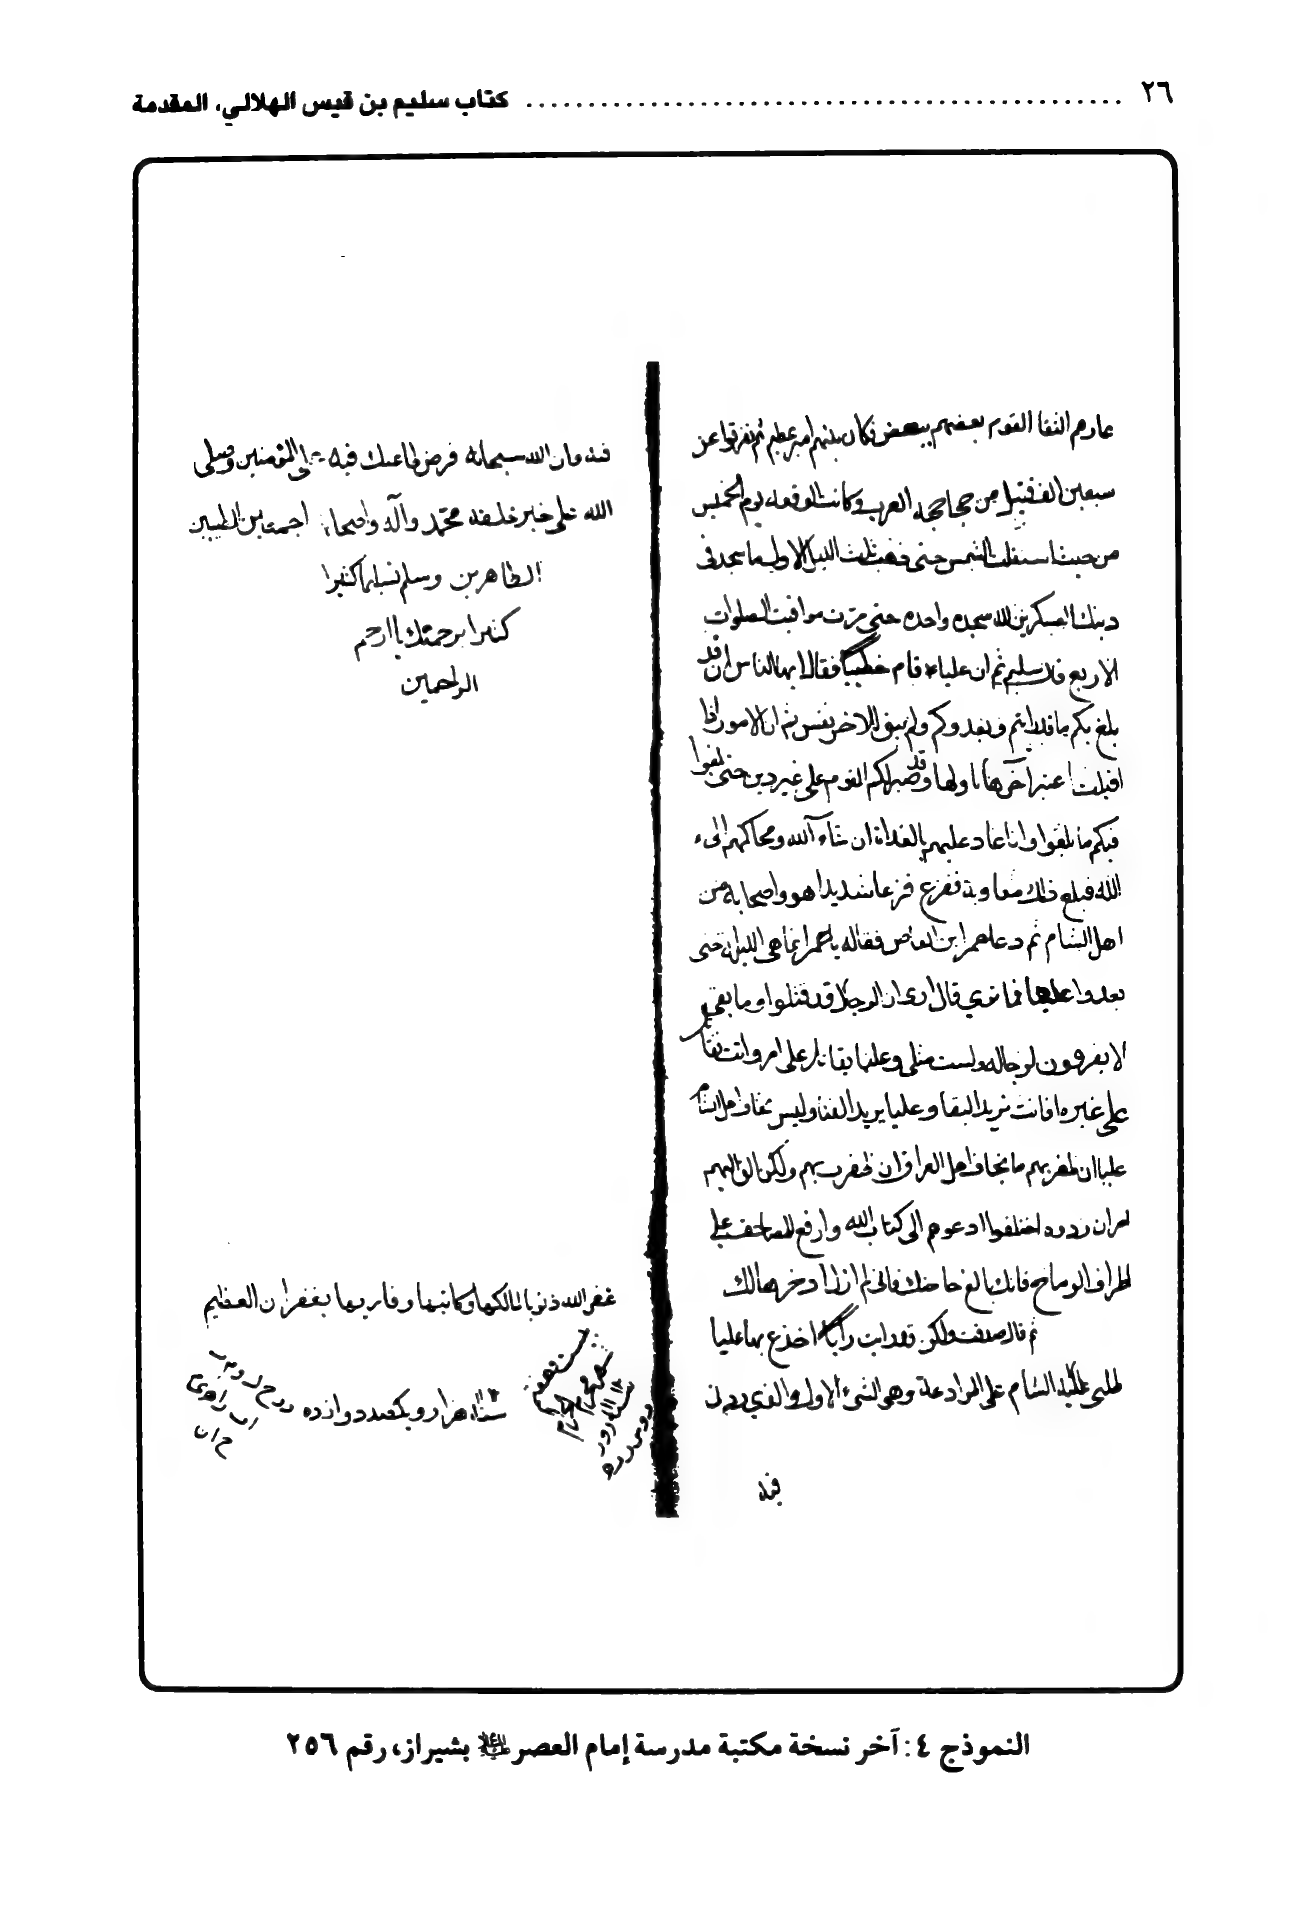 ٢٦ ........ كتاب سليم بن قيس الهلالي، المقدمة
القوم بعضهم ببعض فكان بينهم امر عظيم ثم تفرقوا عن
سبعين الف قتيل من جحاجحه العرب وكانت الوقعه يوم الخميس
من حيث استقلت الشمس حتى ذهب ثلث الليل الاول ما سجد في
ذينك العسكرين لله سجده واحده حتى مرت مواقيت الصلوات
الاربع قال سليم ثم ان عليا قام خطيبا فقال ايها الناس ان قد
بلغ بكم ما قد رايتم وبعدوكم ولم يبق الا اخر نفس ثم ان الامور اذا
اقبلت اعتبر آخرها باولها وقد صبر لكم القوم على غير دين حتى بلغوا
فيكم ما بلغوا وانا غاد عليهم بالغداة ان شاء الله ومحاكمهم الى
الله فبلغ ذلك معاوية ففزع فزعا شديدا هو واصحابه من
اهل الشام ثم دعا عمرا بن العاص فقال له يا عمرا انما هى الليلة حتى
يغدوا علينا فما ترى قال ارى ان الرجال قد قتلوا وما بقى
لا يفرقون لرجاله ولست مثله وعليا يقاتل على امر وانت تقاتل
على غيره افانت تريد البقا وعليا يريد الفنا وليس يخاف اهل الشام
عليا ان ظفر بهم ما يخاف اهل العراق ان ظفرت بهم ولكن الق اليهم
امر ان ردوه اختلفوا ادعوهم الى كتاب الله وارفع المصاحف على
اطراف الرماح فانك بالغ حاجتك فانى لم ازل ادخرها لك
ثم قال صدقت ولكن قد رايت رايا اخدع بها عليا
طلبى اليه الشام على الموادعة وهو الشىء الاول والذي ردنى
فيه
فيه وان الله سبحانه فرض طاعتك فيه على المؤمنين وصلى
الله على خير خلقه محمد وآله واصحابه اجمعين الطيبين
الطاهرين وسلم تسليما كثيرا
كثيرا برحمتك يا ارحم
الراحمين
غفر الله ذنوبا لمالكها وكاتبها وقاريها بغفران العظيم
سنه هزار ويكصد دوازده
النموذج ٤: آخر نسخة مكتبة مدرسة إمام العصر بشيراز، رقم ٢٥٦